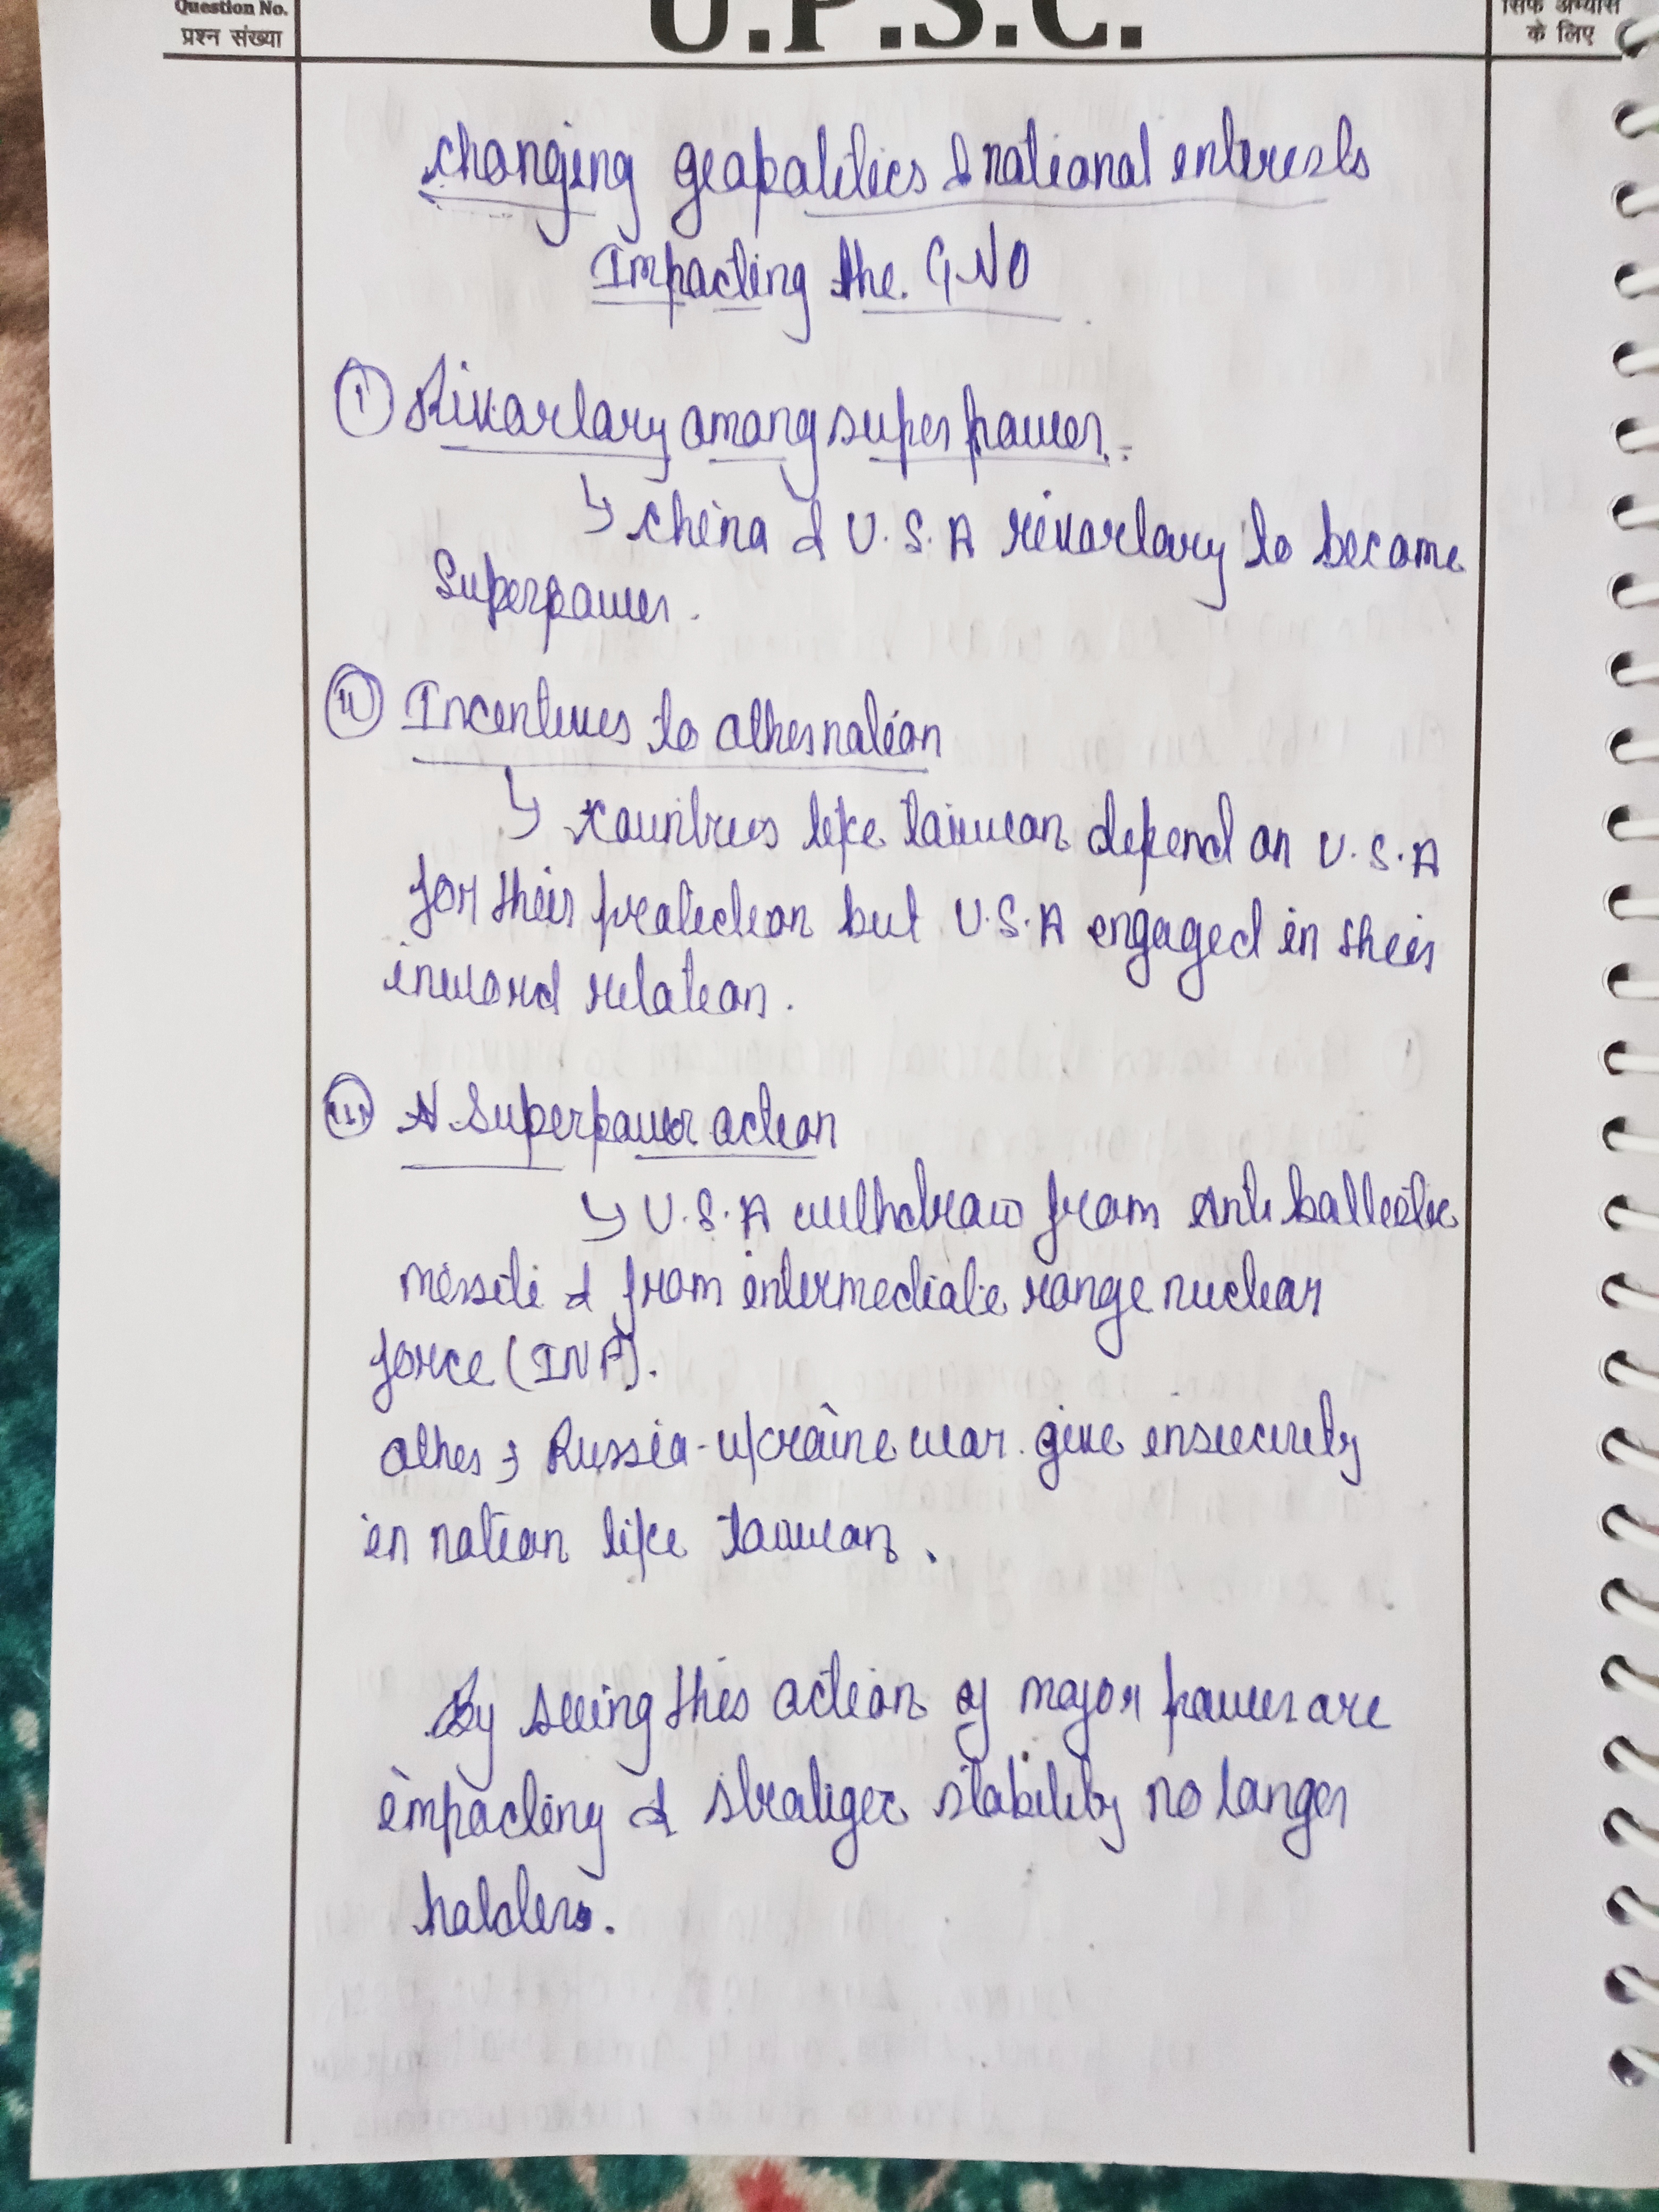 Question No.
प्रश्न संख्या
U.P.S.C.
सिर्फ अभ्यास
के लिए
changing geopolitics & national interests
Impacting the GNO
(I) Rivarlary among super power :
↳ China & U.S.A rivarlary to become
Superpower.
(II) Incentives to other nation
↳ Countries like taiwan depend on U.S.A
for their protection but U.S.A engaged in their
inward relation.
(III) Superpower action
↳ U.S.A withdraw from Anti ballistic
missile & from intermediate range nuclear
force (INF).
other → Russia-ukraine war give insecurity
in nation like taiwan.
By seeing this action of major power are
impacting & strategic stability no longer
holders.